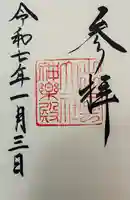 参拝
神楽殿
令和七年一月三日